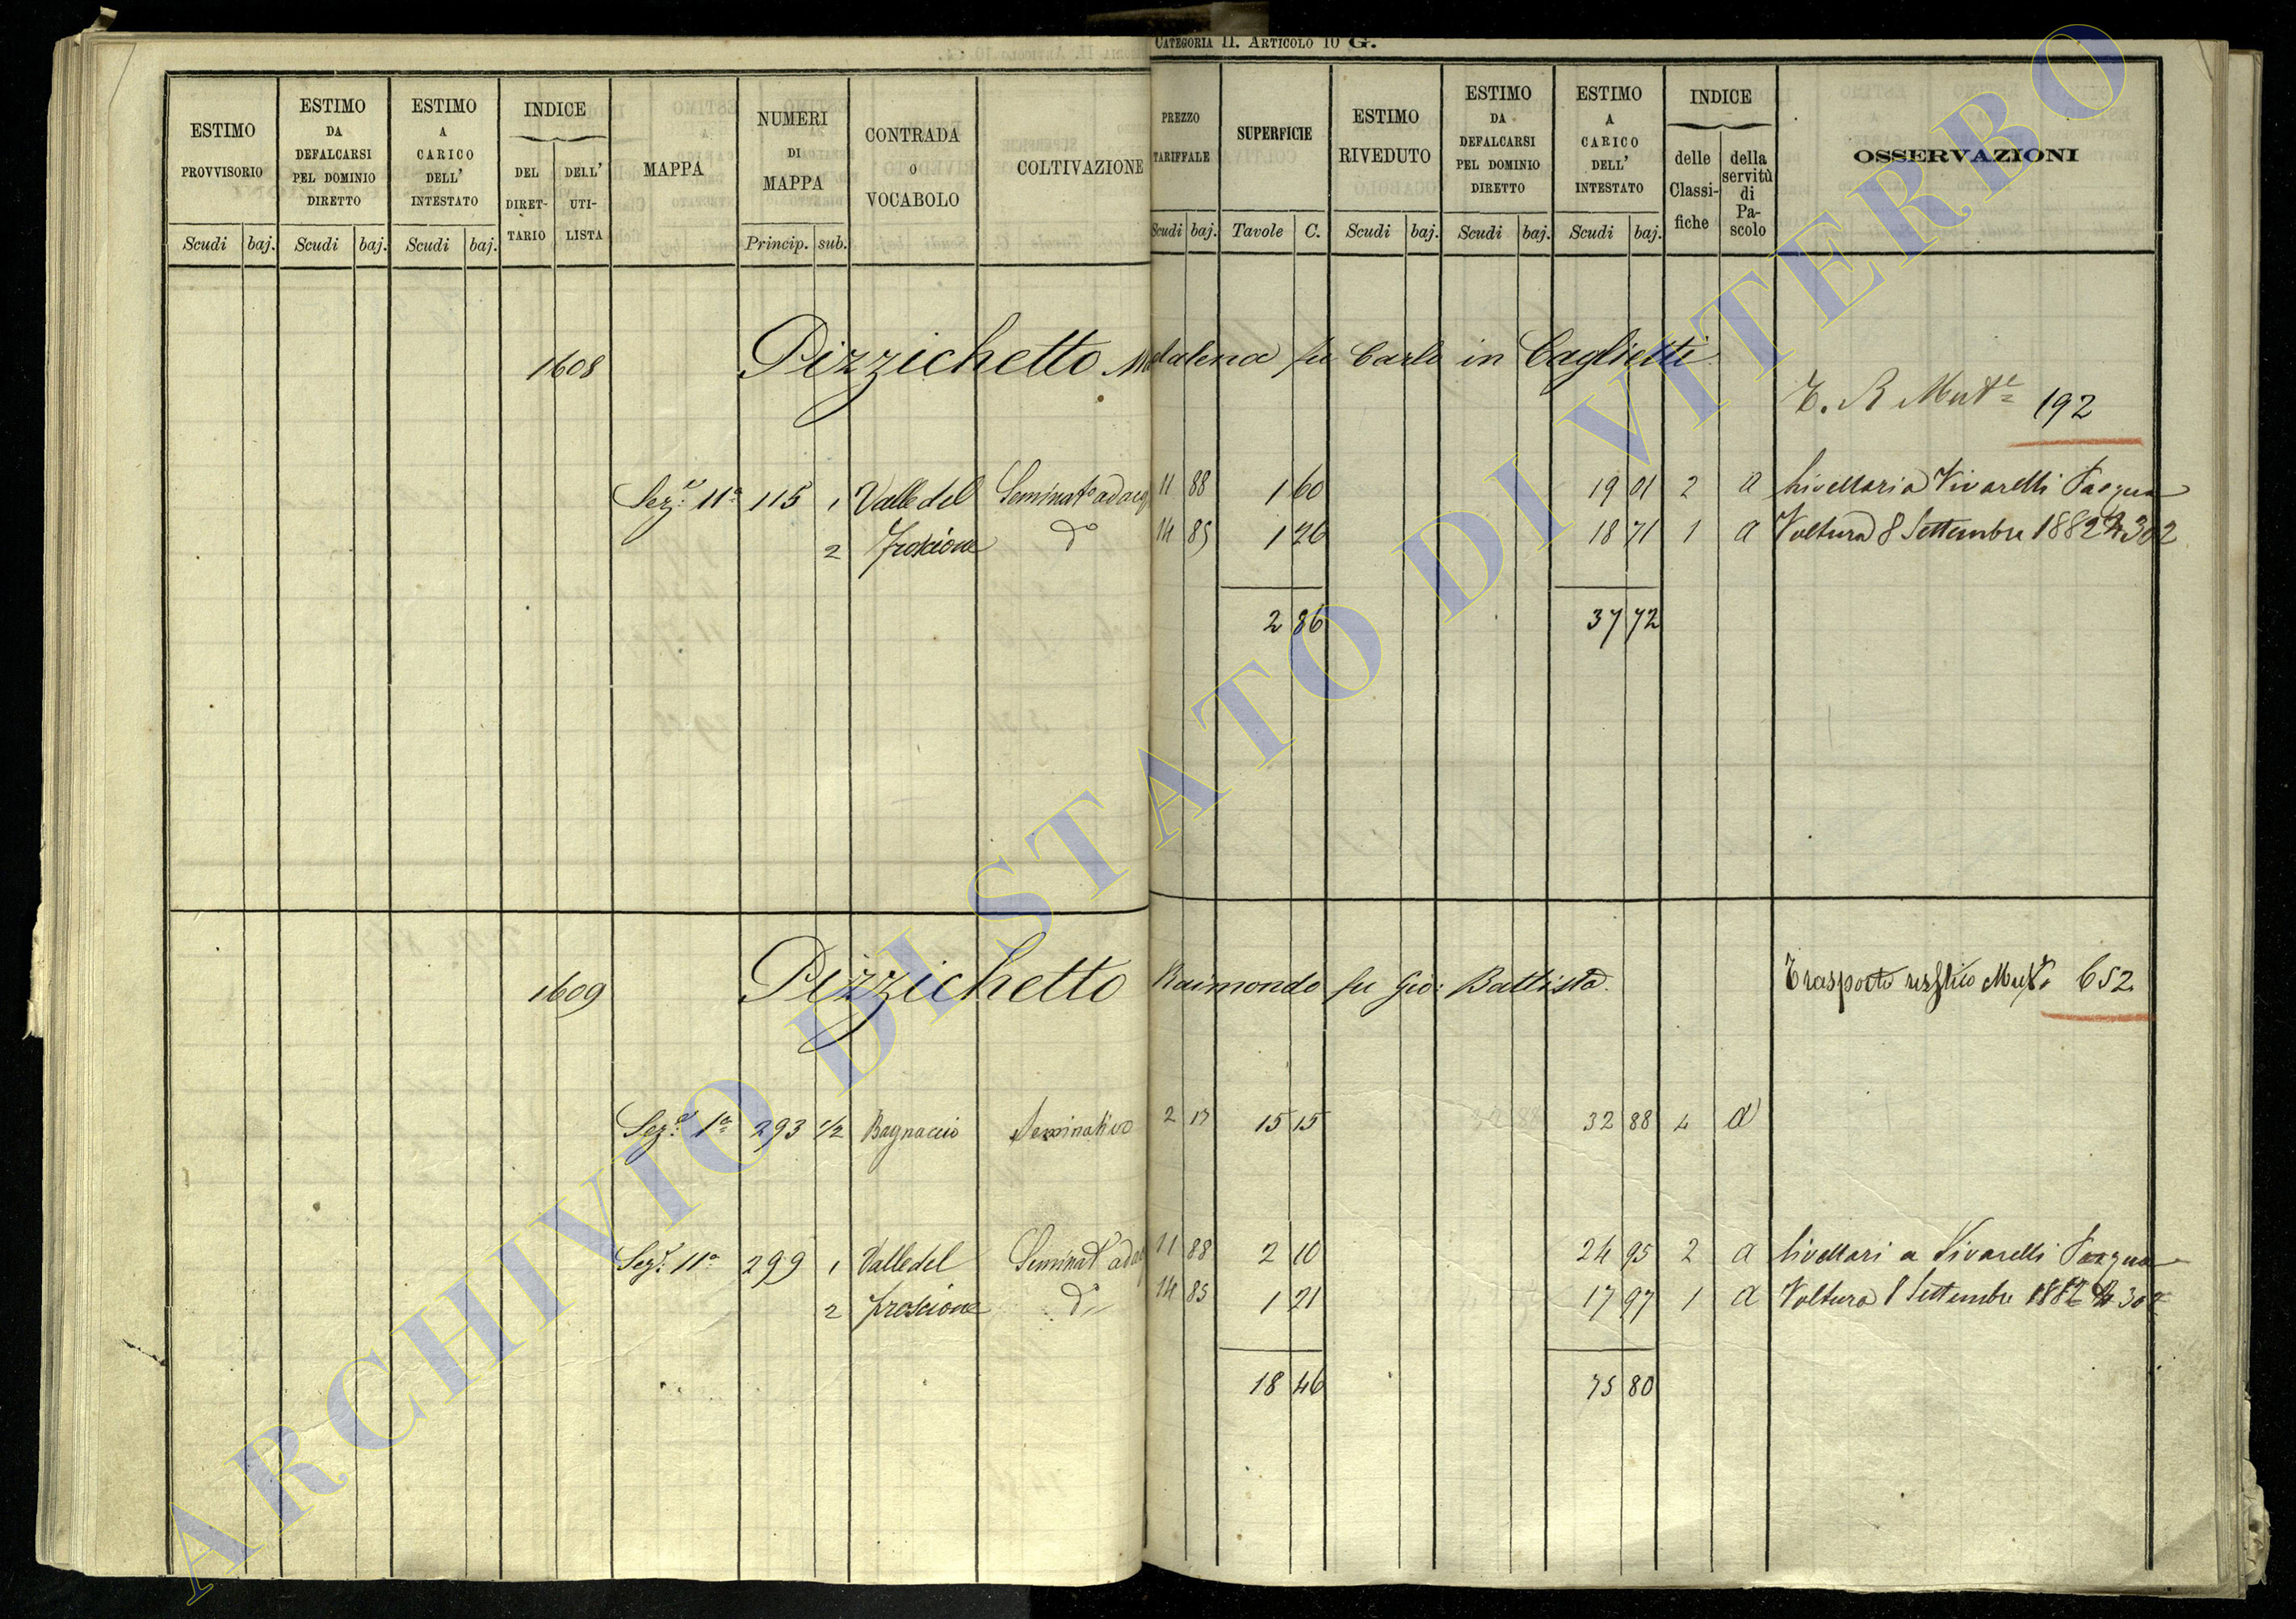 CATEGORIA II. ARTICOLO 10 G.
ESTIMO PROVVISORIO Scudi baj.
ESTIMO DA DEFALCARSI PEL DOMINIO DIRETTO Scudi baj.
ESTIMO A CARICO DELL' INTESTATO Scudi baj.
INDICE DEL DIRET-TARIO DELL' UTI-LISTA
MAPPA
NUMERI DI MAPPA Princip. sub.
CONTRADA O VOCABOLO
COLTIVAZIONE
PREZZO TARIFFALE Scudi baj.
SUPERFICIE Tavole C.
ESTIMO RIVEDUTO Scudi baj.
ESTIMO DA DEFALCARSI PEL DOMINIO DIRETTO Scudi baj.
ESTIMO A CARICO DELL' INTESTATO Scudi baj.
INDICE delle Classi-fiche della servitù di Pa-scolo
OSSERVAZIONI
1608 Pizzichetto Madalena fu Carlo in Caglietti
T. R Mut.e 192
Sez.e 11a 115 1 Valle del Seminato adacq 11 88 1 60 19 01 2 a Livellaria Vivarelli Pasqua
2 froscione do 14 85 1 26 18 71 1 a Voltura 8 Settembre 1882 N 302
2 86 37 72
1609 Pizzichetto Raimondo fu Gio: Battista.
Trasporto rustico Mut.e 652
Sez.e 1a 293 1/2 Bagnaccio Seminativo 2 17 15 15 32 88 4 a
Sez.e 11a 299 1 Valle del Seminat adac 11 88 2 10 24 95 2 a livellari a Vivarelli Pasqua
2 froscione do 14 85 1 21 17 97 1 a Voltura 8 Settembre 1882 N 302
18 46 75 80
ARCHIVIO DI STATO DI VITERBO